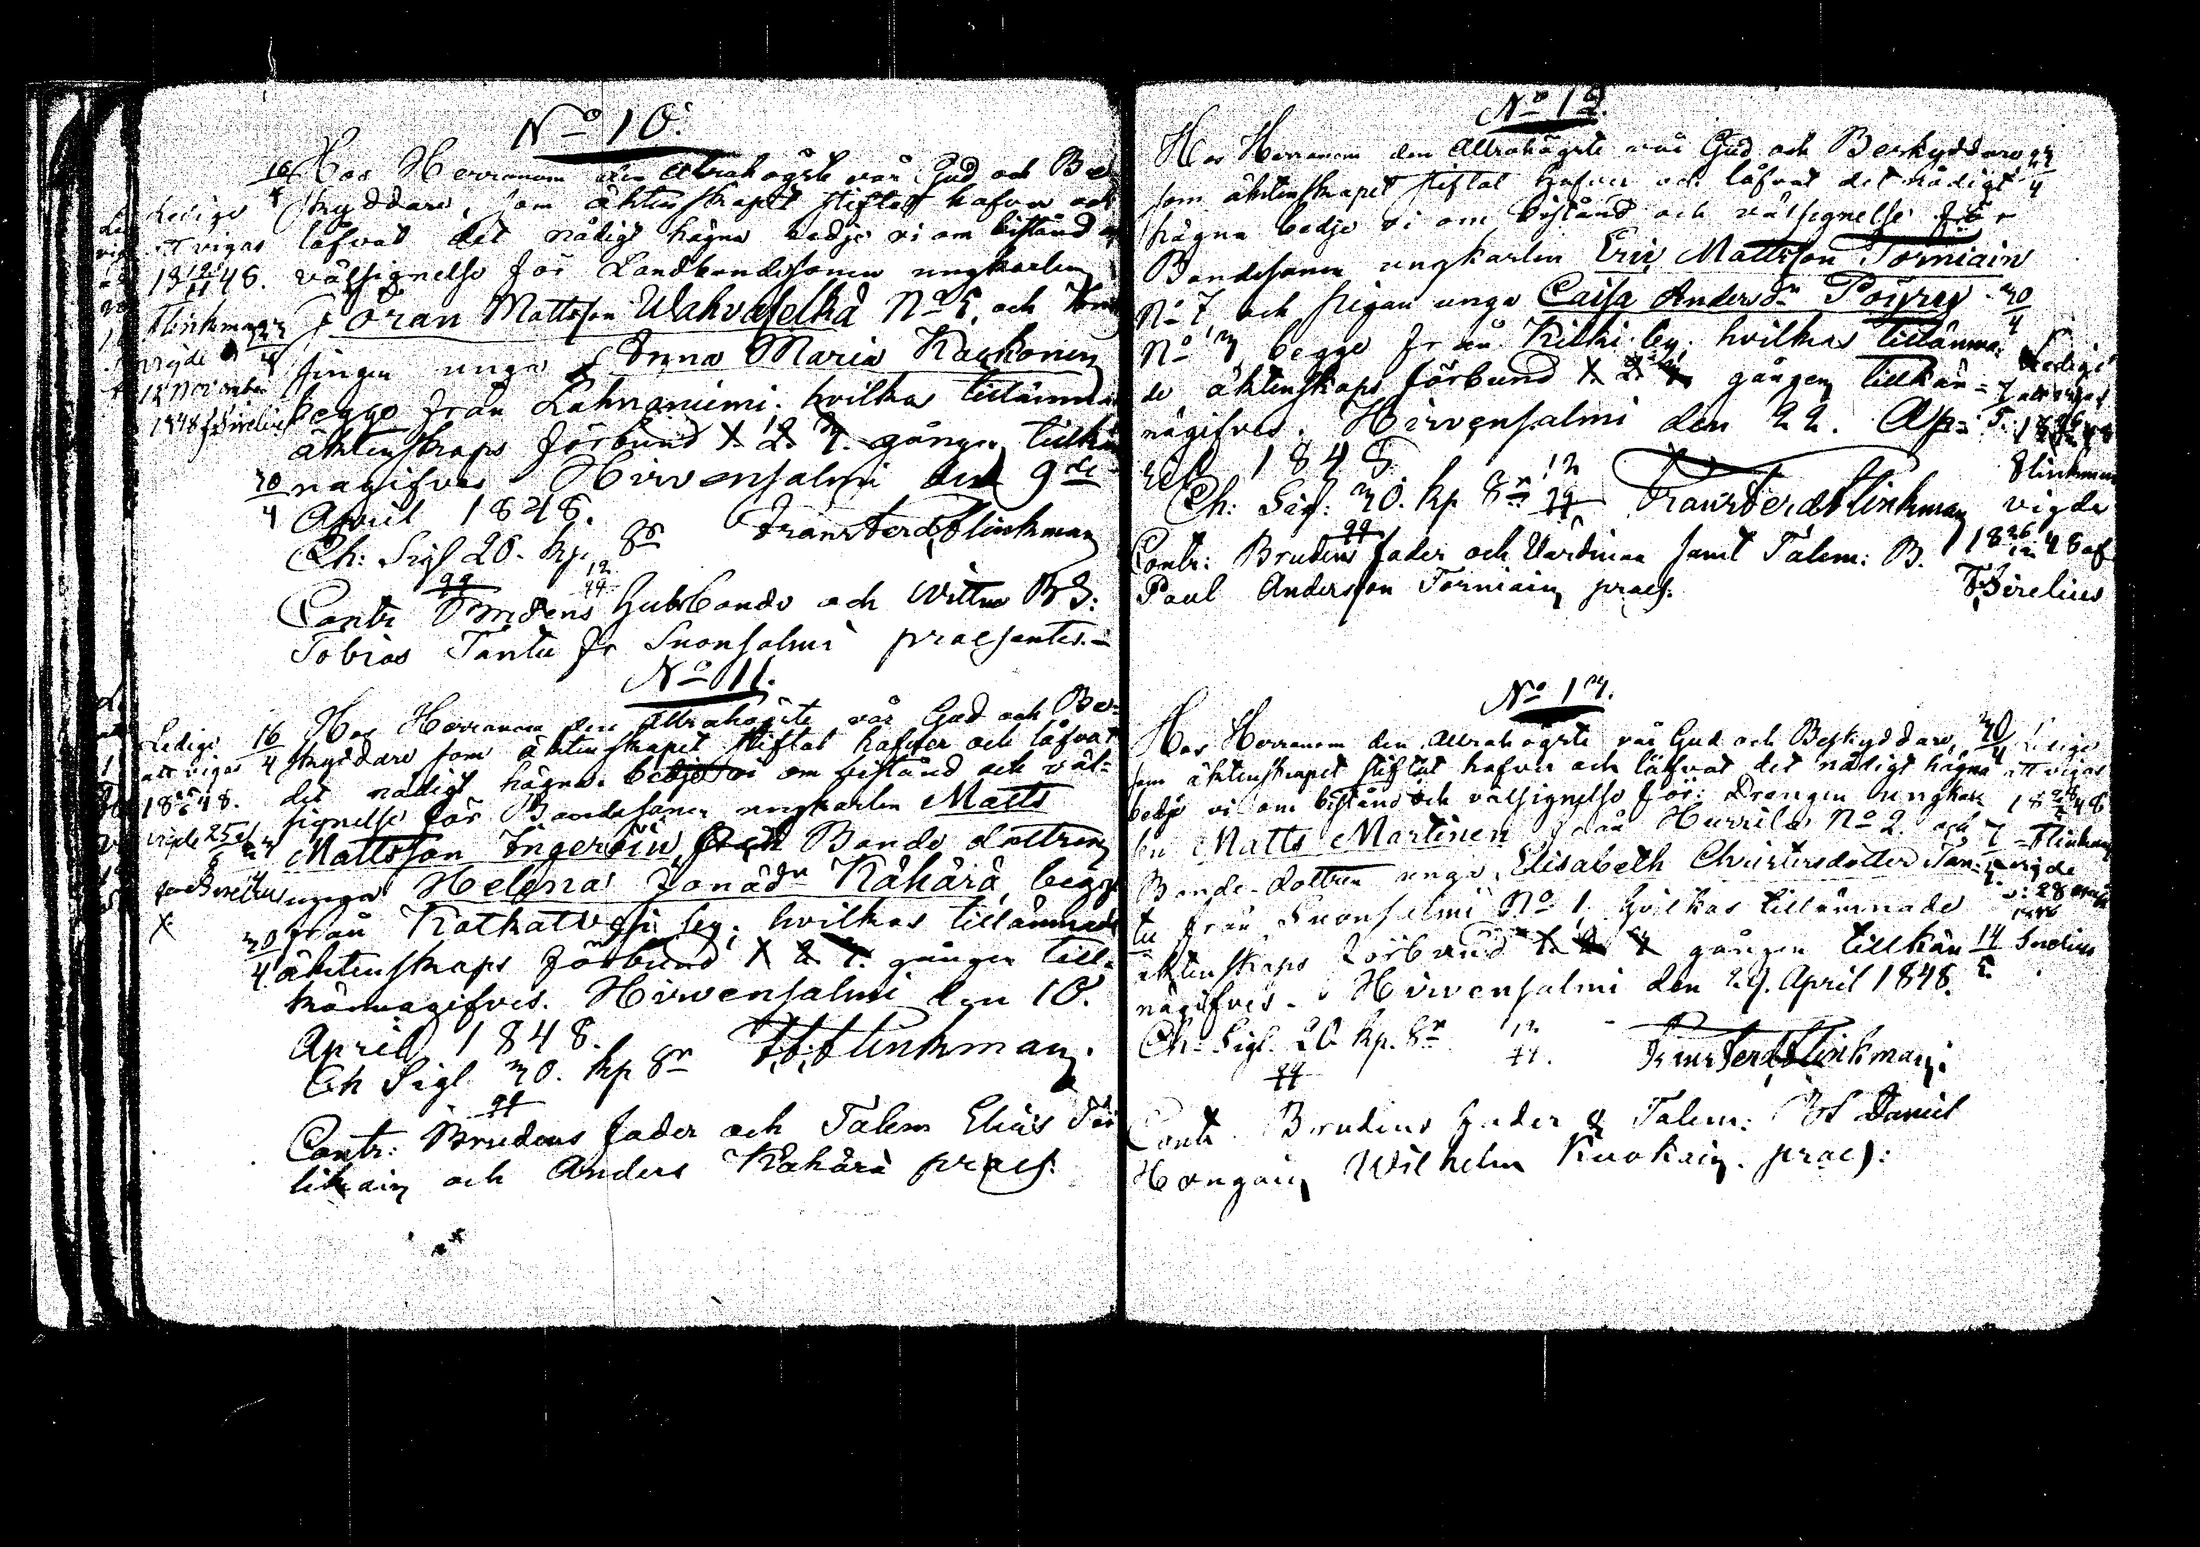 No 10.
Hos Herranom den Allrahögste vår Gud och Be-
skyddare, som äktenskapet stiftat hafver och
låfvat det nådigt hägna bedje vi om bistånd och
välsignelse för Landbondesonen ungkarlen
Göran Mattsson Wahvaselkä No 5, och
unga Anna Maria Kaukonen
begge från Lahnaniemi, hvilkas tillämnade
äktenskaps förbund 1. 2. 3. gången
nagifves Hirvensalmi den 9de
April 1848.
Ch: Sigl 20. kp. Sr Franz Ferd Flinkman
Contr Brudens Gubbonde och Wittne BS:
Tobias Tantu fr Suonsalmi praesentes.
Ledige
att vigas
13 12/11 48.
Flinkman
vigde
12 November
1848 F. Sirelius
16/4
30/4
No 11.
Hos Herranom den Allrahögste vår Gud och Be-
skyddare som äktenskapet stiftat hafver och låfvat
det nådigt hägna, bedje vi om bistånd och väl-
signelse för Bondesonen ungkarlen Matts
Mattsson Ingeröin och Bonde dottren
unga Helena Jonädr Kähärä, begge
från Kotkatvesi by; hvilkas tillämnade
äktenskaps förbund 1. 2. 3. gången till-
kännagifves. Hirvensalmi den 10.
April 1848. F. F. Flinkman.
Ch Sigl 30. kp Sr
Contr: Brudens fader och Talem Elias
och Anders Kähärä praes:
Ledige
att vigas
16/4
30/4
No 12.
Hos Herranom den Allrahögste vår Gud och Beskyddare
som äktenskapet stiftat hafver och låfvat det nådigt
hägna bedje vi om bistånd och välsignelse för
Bondesonen ungkarlen Eric Mattsson Torniain
No 7 och pigan unga Caisa Andersdr Pöyry
No 3 begge från Kilkki by, hvilkas tillämna-
de äktenskaps förbund 1. 2. 3. gången tillkän-
nagifves. Hirvensalmi den 22. Ap-
ril 1848
Ch: Sigl: 30. kp Sr Franz Ferd Flinkman
Contr: Brudens fader och Värdinna samt Talem: B.
Paul Andersson Torniain praes.
30/4
Ledige
att vigas
Flinkman
vigde
18 26/12 48 af
F. Sirelius
No 13.
Hos Herranom den Allrahögste vår Gud och Beskyddare,
som äktenskapet stiftat hafver och låfvat det nådigt hägna
bedje vi om bistånd och välsignelse för: Drengen ungkar-
len Matts Martinen från Hurrila No 2. och
Bonde-dottren unga, Elisabeth Christersdotter Tan-
tu från Suonsalmi No 1, hvilkas tillämnade
äktenskaps förbund 1. 2. 3. gången tillkän-
nagifves. Hirvensalmi den 29. April 1848.
Ch: Sigl. 20 kp. Sr Franz Ferd Flinkman.
Contr. Brudens fader & Talem: BS Daniel
Wilhelm Kuokain. praes:
30/4
Ledige
att vigas
Flinkman
vigde
14/5
Sirelius